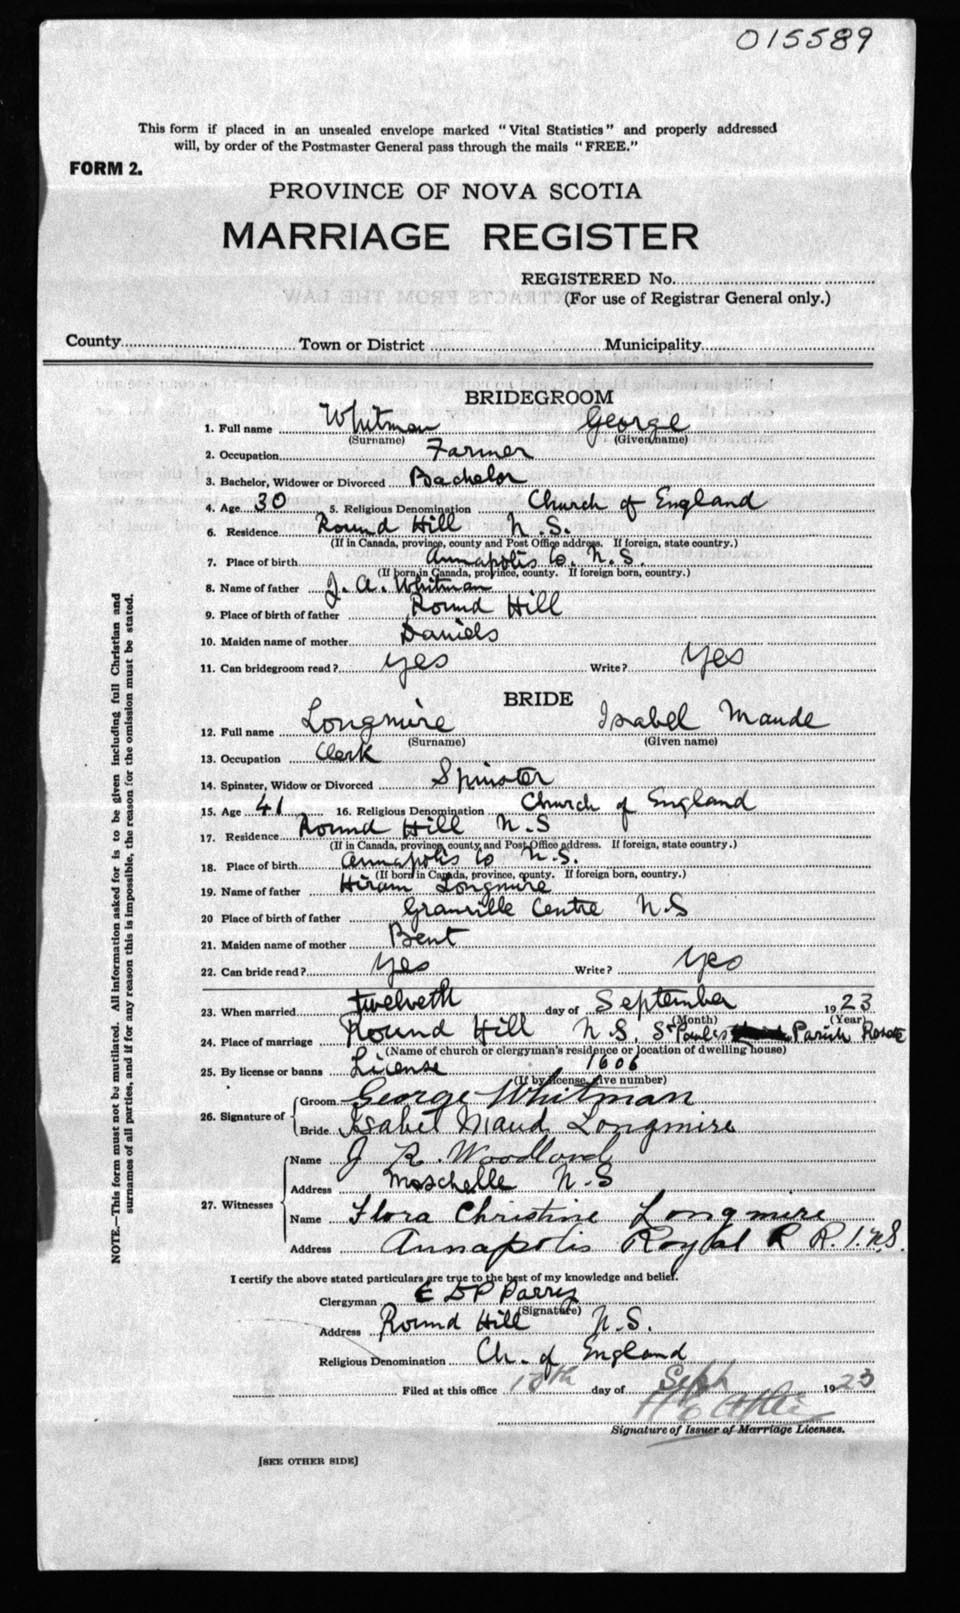 015589
This form if placed in an unsealed envelope marked "Vital Statistics" and properly addressed
will, by order of the Postmaster General pass through the mails "FREE."
FORM 2.
PROVINCE OF NOVA SCOTIA
MARRIAGE REGISTER
REGISTERED No.
(For use of Registrar General only.)
County Town or District Municipality
BRIDEGROOM
1. Full name Whitman George
(Surname) (Given name)
2. Occupation Farmer
3. Bachelor, Widower or Divorced Bachelor
4. Age 30 5. Religious Denomination Church of England
6. Residence Round Hill N.S.
(If in Canada, province, county and Post Office address. If foreign, state country.)
7. Place of birth Annapolis Co. N.S.
(If born in Canada, province, county. If foreign born, country.)
8. Name of father J. A. Whitman
9. Place of birth of father Round Hill
10. Maiden name of mother Daniels
11. Can bridegroom read? yes Write? yes
BRIDE
12. Full name Longmire Isabel Maude
(Surname) (Given name)
13. Occupation Clerk
14. Spinster, Widow or Divorced Spinster
15. Age 41 16. Religious Denomination Church of England
17. Residence Round Hill N.S
(If in Canada, province, county and Post Office address. If foreign, state country.)
18. Place of birth Annapolis Co N.S.
(If born in Canada, province, county. If foreign born, country.)
19. Name of father Hiram Longmire
20 Place of birth of father Granville Centre N.S
21. Maiden name of mother Bent
22. Can bride read? yes Write? yes
23. When married twelveth day of September 1923
(Month) (Year)
24. Place of marriage Round Hill N.S. St Paul's Parish
(Name of church or clergyman's residence or location of dwelling house)
25. By license or banns License 1606
(If by license, give number)
26. Signature of Groom George Whitman
Bride Isabel Maud Longmire
27. Witnesses Name J R. Woodland
Address Moschelle N.S
Name Flora Christine Longmire
Address Annapolis Royal R R. 1. N.S.
I certify the above stated particulars are true to the best of my knowledge and belief.
Clergyman E DP Parry
(Signature)
Address Round Hill N.S.
Religious Denomination Ch. of England
Filed at this office day of Sept 1923
Signature of Issuer of Marriage Licenses.
[SEE OTHER SIDE]
NOTE.—This form must not be mutilated. All information asked for is to be given including full Christian and
surnames of all parties, and if for any reason this is impossible, the reason for the omission must be stated.